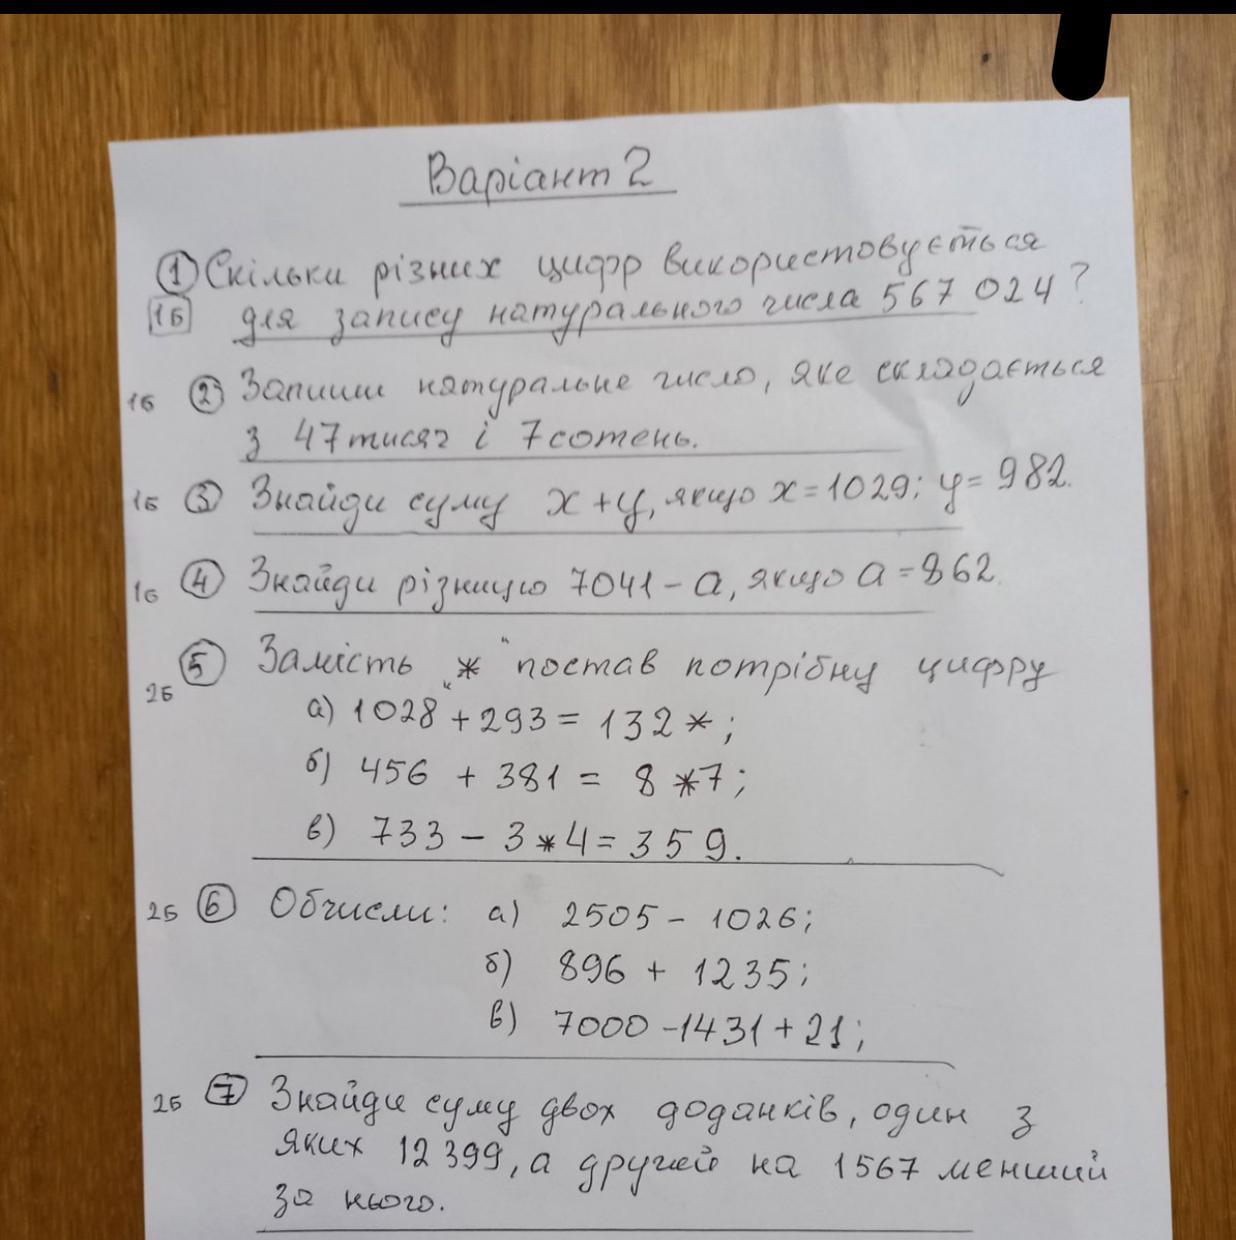 Варіант 2
① Скільки різних цифр використовується
1Б для запису натурального числа 567 024?
1б ② Запиши натуральне число, яке складається
з 47 тисяч і 7 сотень.
1б ③ Знайди суму x + y, якщо x = 1029; y = 982.
1б ④ Знайди різницю 7041 – a, якщо a = 862.
⑤ Замість „*“ постав потрібну цифру
2Б
а) 1028 + 293 = 132*;
б) 456 + 381 = 8*7;
в) 733 – 3*4 = 359.
2Б ⑥ Обчисли: а) 2505 – 1026;
б) 896 + 1235;
в) 7000 – 1431 + 21;
2Б ⑦ Знайди суму двох доданків, один з
яких 12 399, а другий на 1567 менший
за нього.